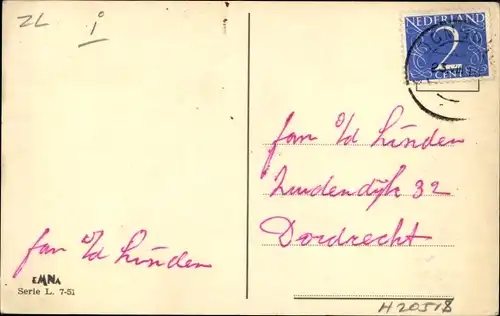 ZL
i
NEDERLAND
2
CENT
fam v/d Linden
Zuidendijk 32
Dordrecht
fam v/d Linden
EMNA
Serie L. 7-51
H 20518